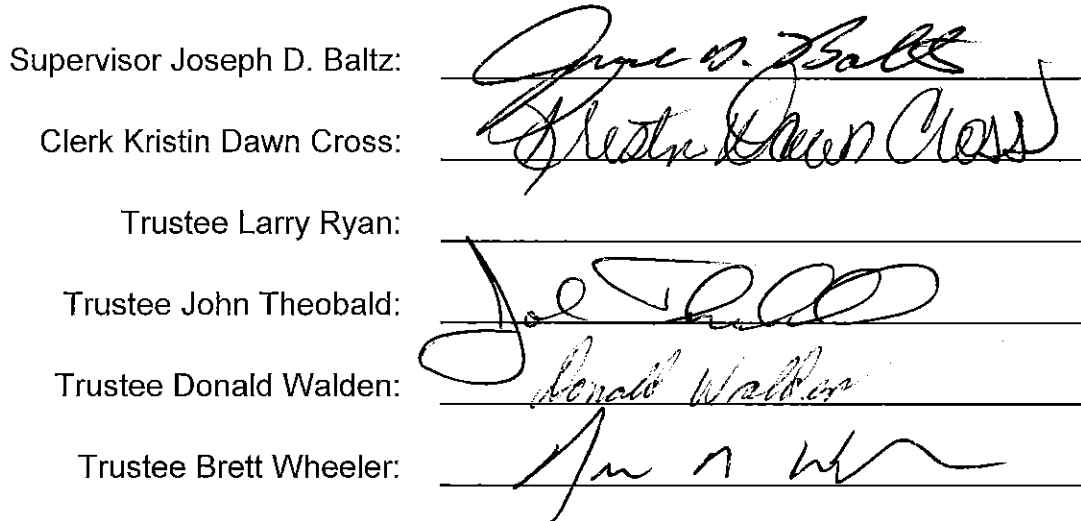 Supervisor Joseph D. Baltz: D. Baltz
Clerk Kristin Dawn Cross: Kristin Dawn Cross
Trustee Larry Ryan:
Trustee John Theobald:
Trustee Donald Walden: Donald Walden
Trustee Brett Wheeler: